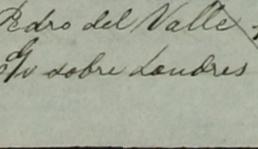 Pedro del Valle
Gv sobre Londres